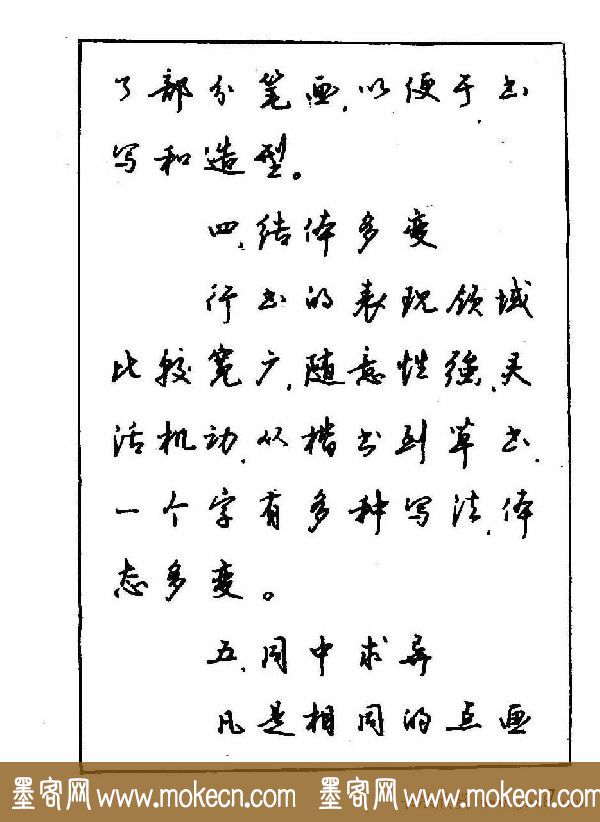 了部分笔画,以便于书
写和造型。
四、结体多变
行书的表现领域
比较宽广,随意性强,灵
活机动,从楷书到草书,
一个字有多种写法,体
态多变。
五、同中求异
凡是相同的点画
墨客网 www.mokecn.com 墨客网 www.mokecn.com